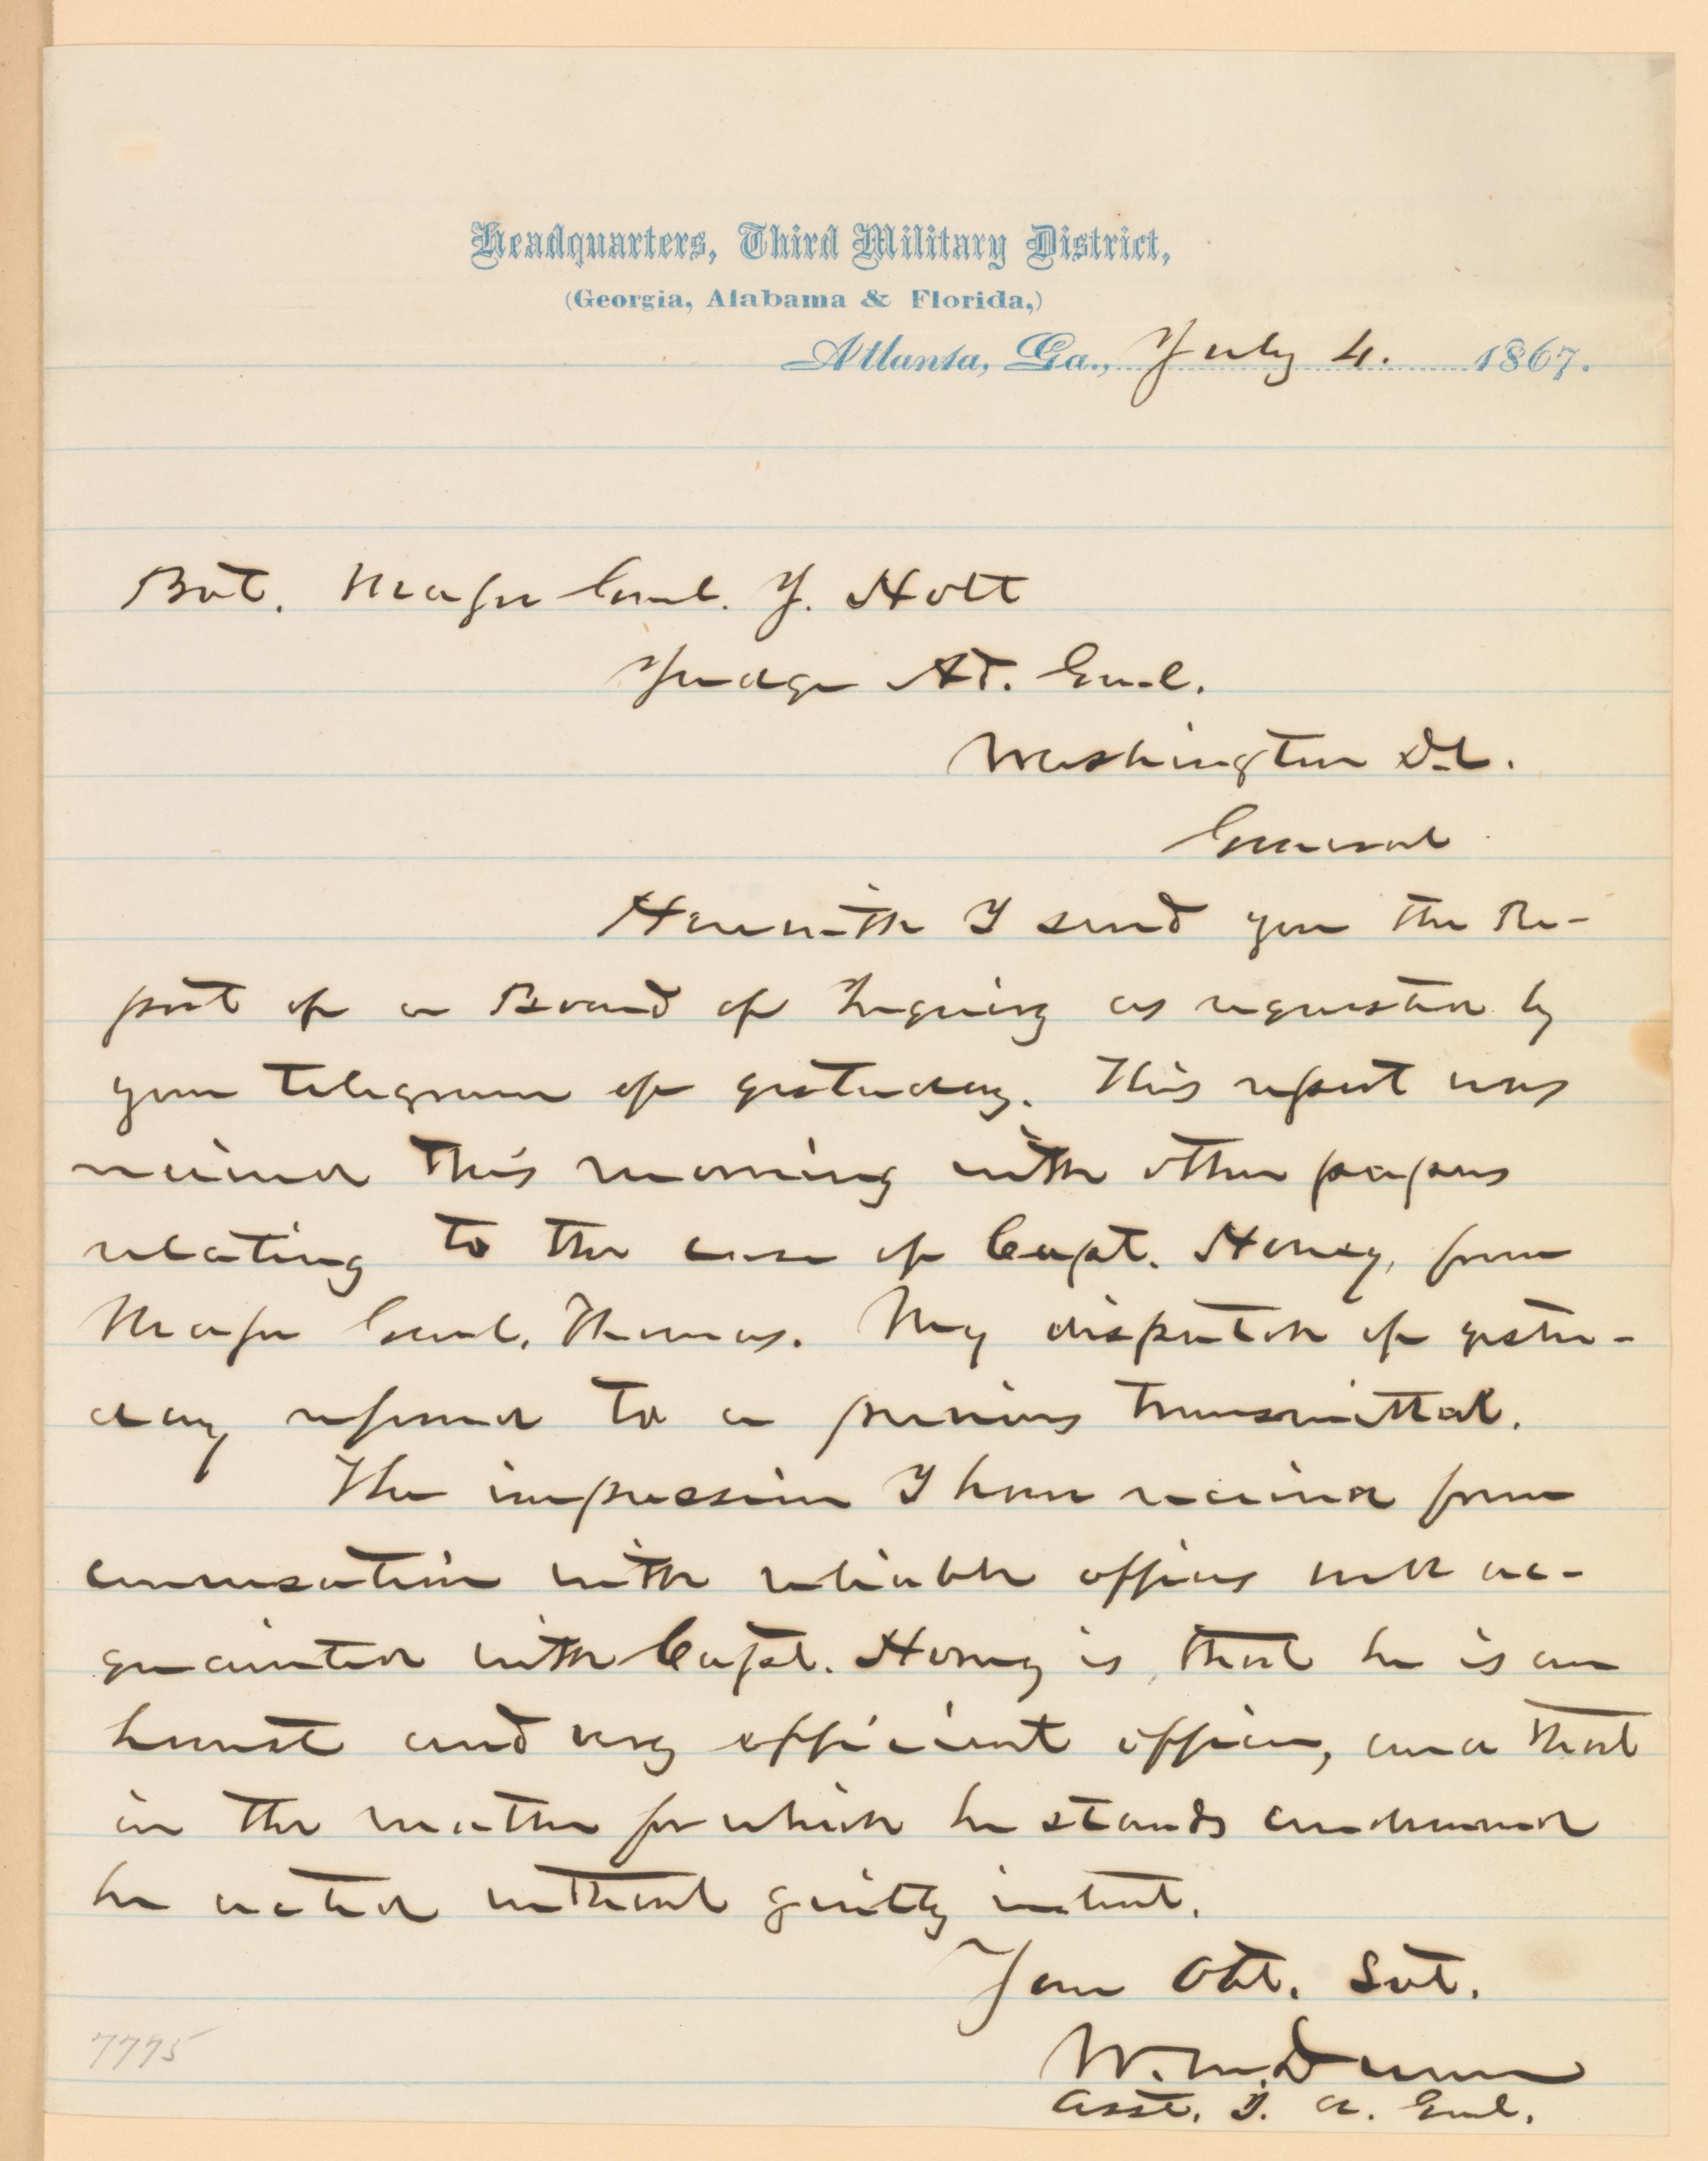 Headquarters, Third Military District,
(Georgia, Alabama & Florida,)
Atlanta, Ga., July 4. 1867.
Bvt. Major Genl. J. Holt
Judge At. Genl.
Washington D.C.
General
Herewith I send you the Re-
port of a Board of Inquiry as requested by
your telegram of yesterday. This report was
received this morning with other papers
relating to the case of Capt. Honey, from
Major Genl. Thomas. My dispatch of yester-
day referred to a previous transmittal.
The impression I have received from
conversation with reliable officers well ac-
quainted with Capt. Honey is, that he is an
honest and very efficient officer, and that
in the matter for which he stands condemned
he acted without guilty intent.
Your Obt. Svt.
W. M. Dunn
Asst. J. A. Genl.
7775